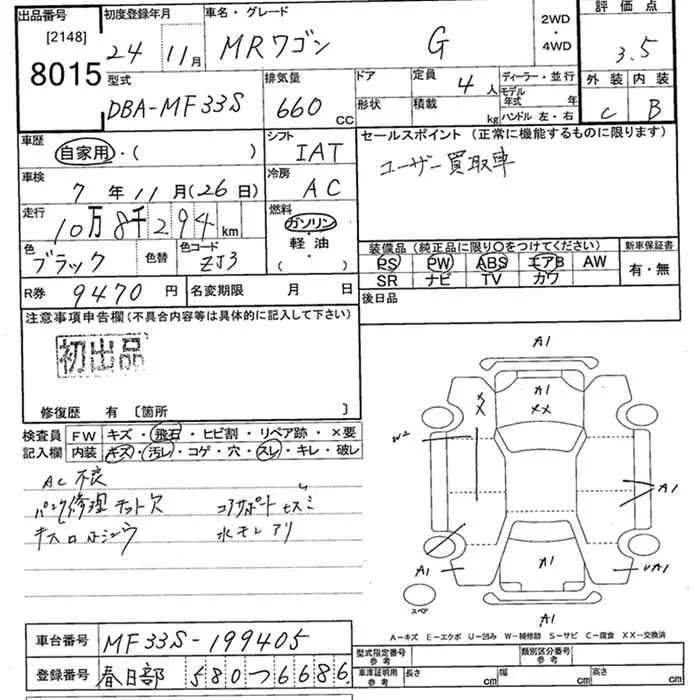 出品番号 初度登録年月 車名・グレード 2WD・4WD 評価点
[2148]
8015 24 11月 MRワゴン G 3.5
型式 排気量 ドア 定員 4人 ディーラー・並行 外装 内装
DBA-MF33S 660CC 形状 積載 kg モデル年式 年 C B
ハンドル 左・右
車歴 自家用・( ) シフト IAT セールスポイント (正常に機能するものに限ります)
車検 7年11月(26日) 冷房 AC ユーザー買取車
走行 10万8千294km 燃料 ガソリン・軽油・( )
色 ブラック 色替 色コード ZJ3
装備品(純正品に限り○をつけてください) 新車保証書
PS PW ABS エアB AW 有・無
SR ナビ TV カワ
R券 9470円 名変期限 月 日 後日品
注意事項申告欄(不具合内容等は具体的に記入して下さい)
初出品
修復歴 有 〔箇所 〕
検査員記入欄 FW キズ・飛石・ヒビ割・リペア跡・×要
内装 キズ・汚レ・コゲ・穴・スレ・キレ・破レ
AC不良
パンク修理キット欠 コアサポート
水モレアリ
A1
A1
XX
XX
W2
A1
A1
A1
UA1
A1
スペア
A-キズ E-エクボ U-凹み W-補修跡 S-サビ C-腐食 XX-交換済
車台番号 MF33S-199405
登録番号 春日部 580つ6686
型式指定番号 参考 類別区分番号 参考
車庫証明用 参考 長さ cm 幅 cm 高さ cm